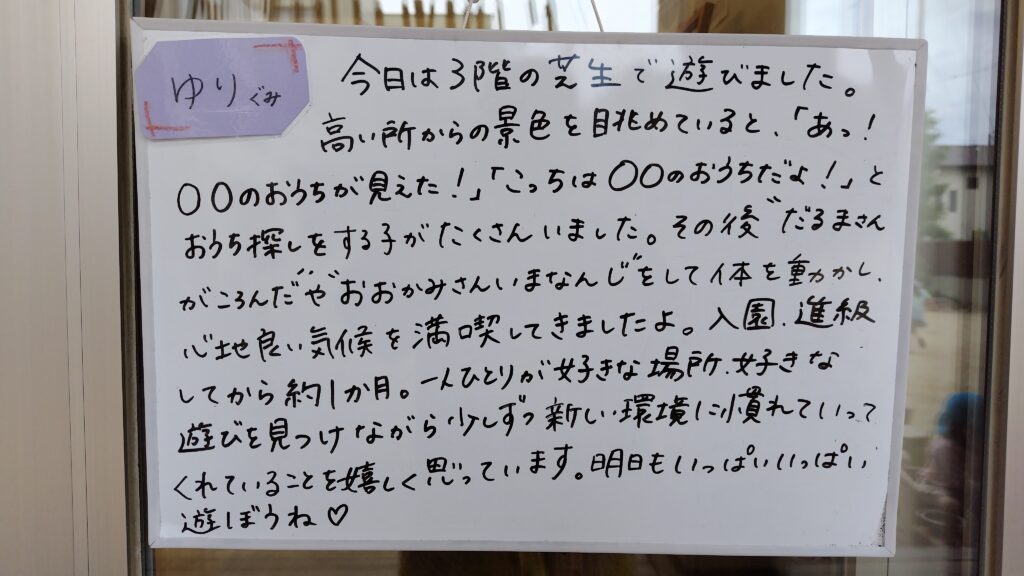 ゆりぐみ
今日は3階の芝生で遊びました。
高い所からの景色を眺めていると、「あっ!
〇〇のおうちが見えた!」「こっちは〇〇のおうちだよ!」と
おうち探しをする子がたくさんいました。その後"だるまさん
がころんだ"や"おおかみさんいまなんじ"をして体を動かし、
心地良い気候を満喫してきましたよ。入園、進級
してから約1か月。一人ひとりが好きな場所、好きな
遊びを見つけながら少しずつ新しい環境に慣れていって
くれていることを嬉しく思っています。明日もいっぱいいっぱい
遊ぼうね♡